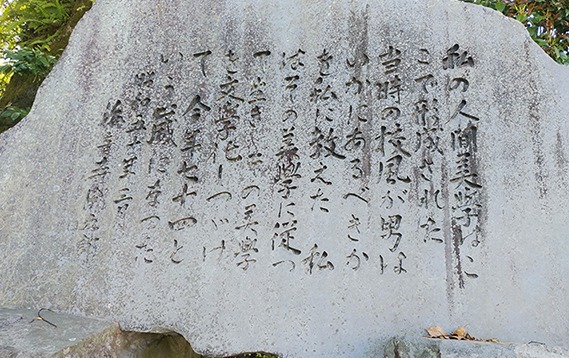 私の人間美學はこ
こで形成された
当時の校風が男は
いかにあるべきか
を私に教えた 私
はその美學に従つ
て生き その美學
を文学化しつづけ
て 今年七十四と
いう歳になつた
昭和五十年三月
海音寺潮五郎